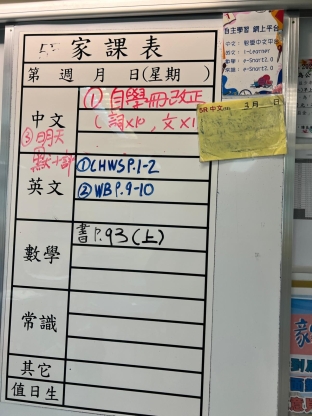 家課表
第 週 月 日(星期 )
中文
①自學冊改正
(詞x10,文x1
③明天
英文
①CHWSP.1-2
②WBP.9-10
數學
書P.93(上)
常識
其它
值日生
自主學習 網上平台
i-Learner
e-Smart2.0
e-Smart2.0